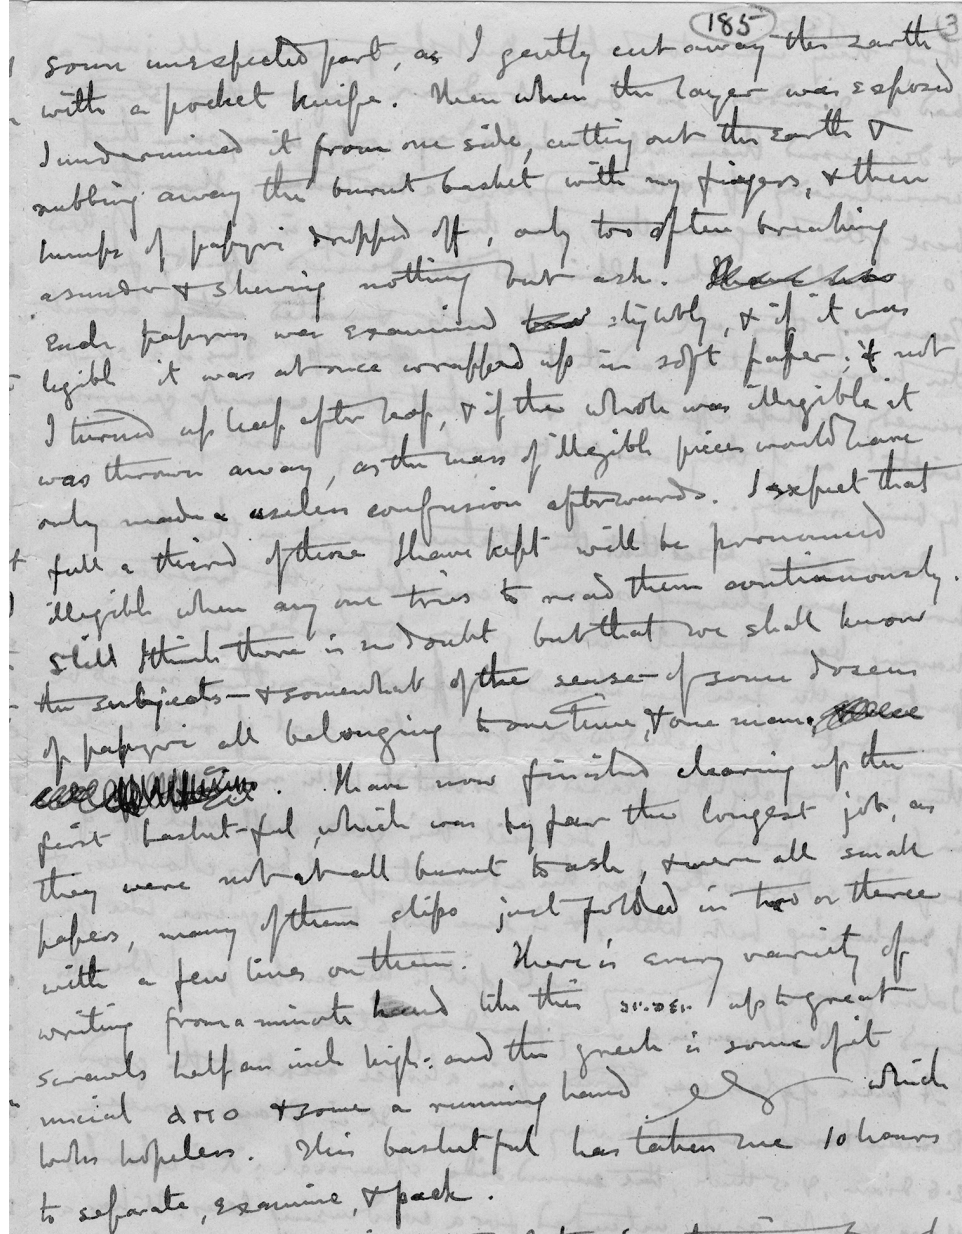 185
some unexpected part, as I gently cut away the earth
with a pocket knife. Then when the layer was exposed
I undermined it from one side, cutting out the earth &
rubbing away the burnt basket with my fingers, & then
lumps of papyri dropped off, only too often breaking
asunder & shewing nothing but ash.
Each papyrus was examined slightly, & if it was
legible it was at once wrapped up in soft paper; if not
I turned up leaf after leaf, & if the whole was illegible it
was thrown away, as the mass of illegible pieces would have
only made a useless confusion afterwards. I expect that
full a third of those I have kept will be pronounced
illegible when any one tries to read them continuously.
Still I think there is no doubt but that we shall know
the subjects - & somewhat of the sense - of some dozens
of papyri all belonging to one time, & one man,
. I have now finished clearing up the
first basket-ful, which was by far the longest job, as
they were not at all burnt to ash, & were all small
papers, many of them slips just folded in two or three
with a few lines on them. There is every variety of
writing from a minute hand like this up to great
scrawls half an inch high: and the greek is some of it
uncial & some a running hand which
looks hopeless. This basketful has taken me 10 hours
to separate, examine, & pack.